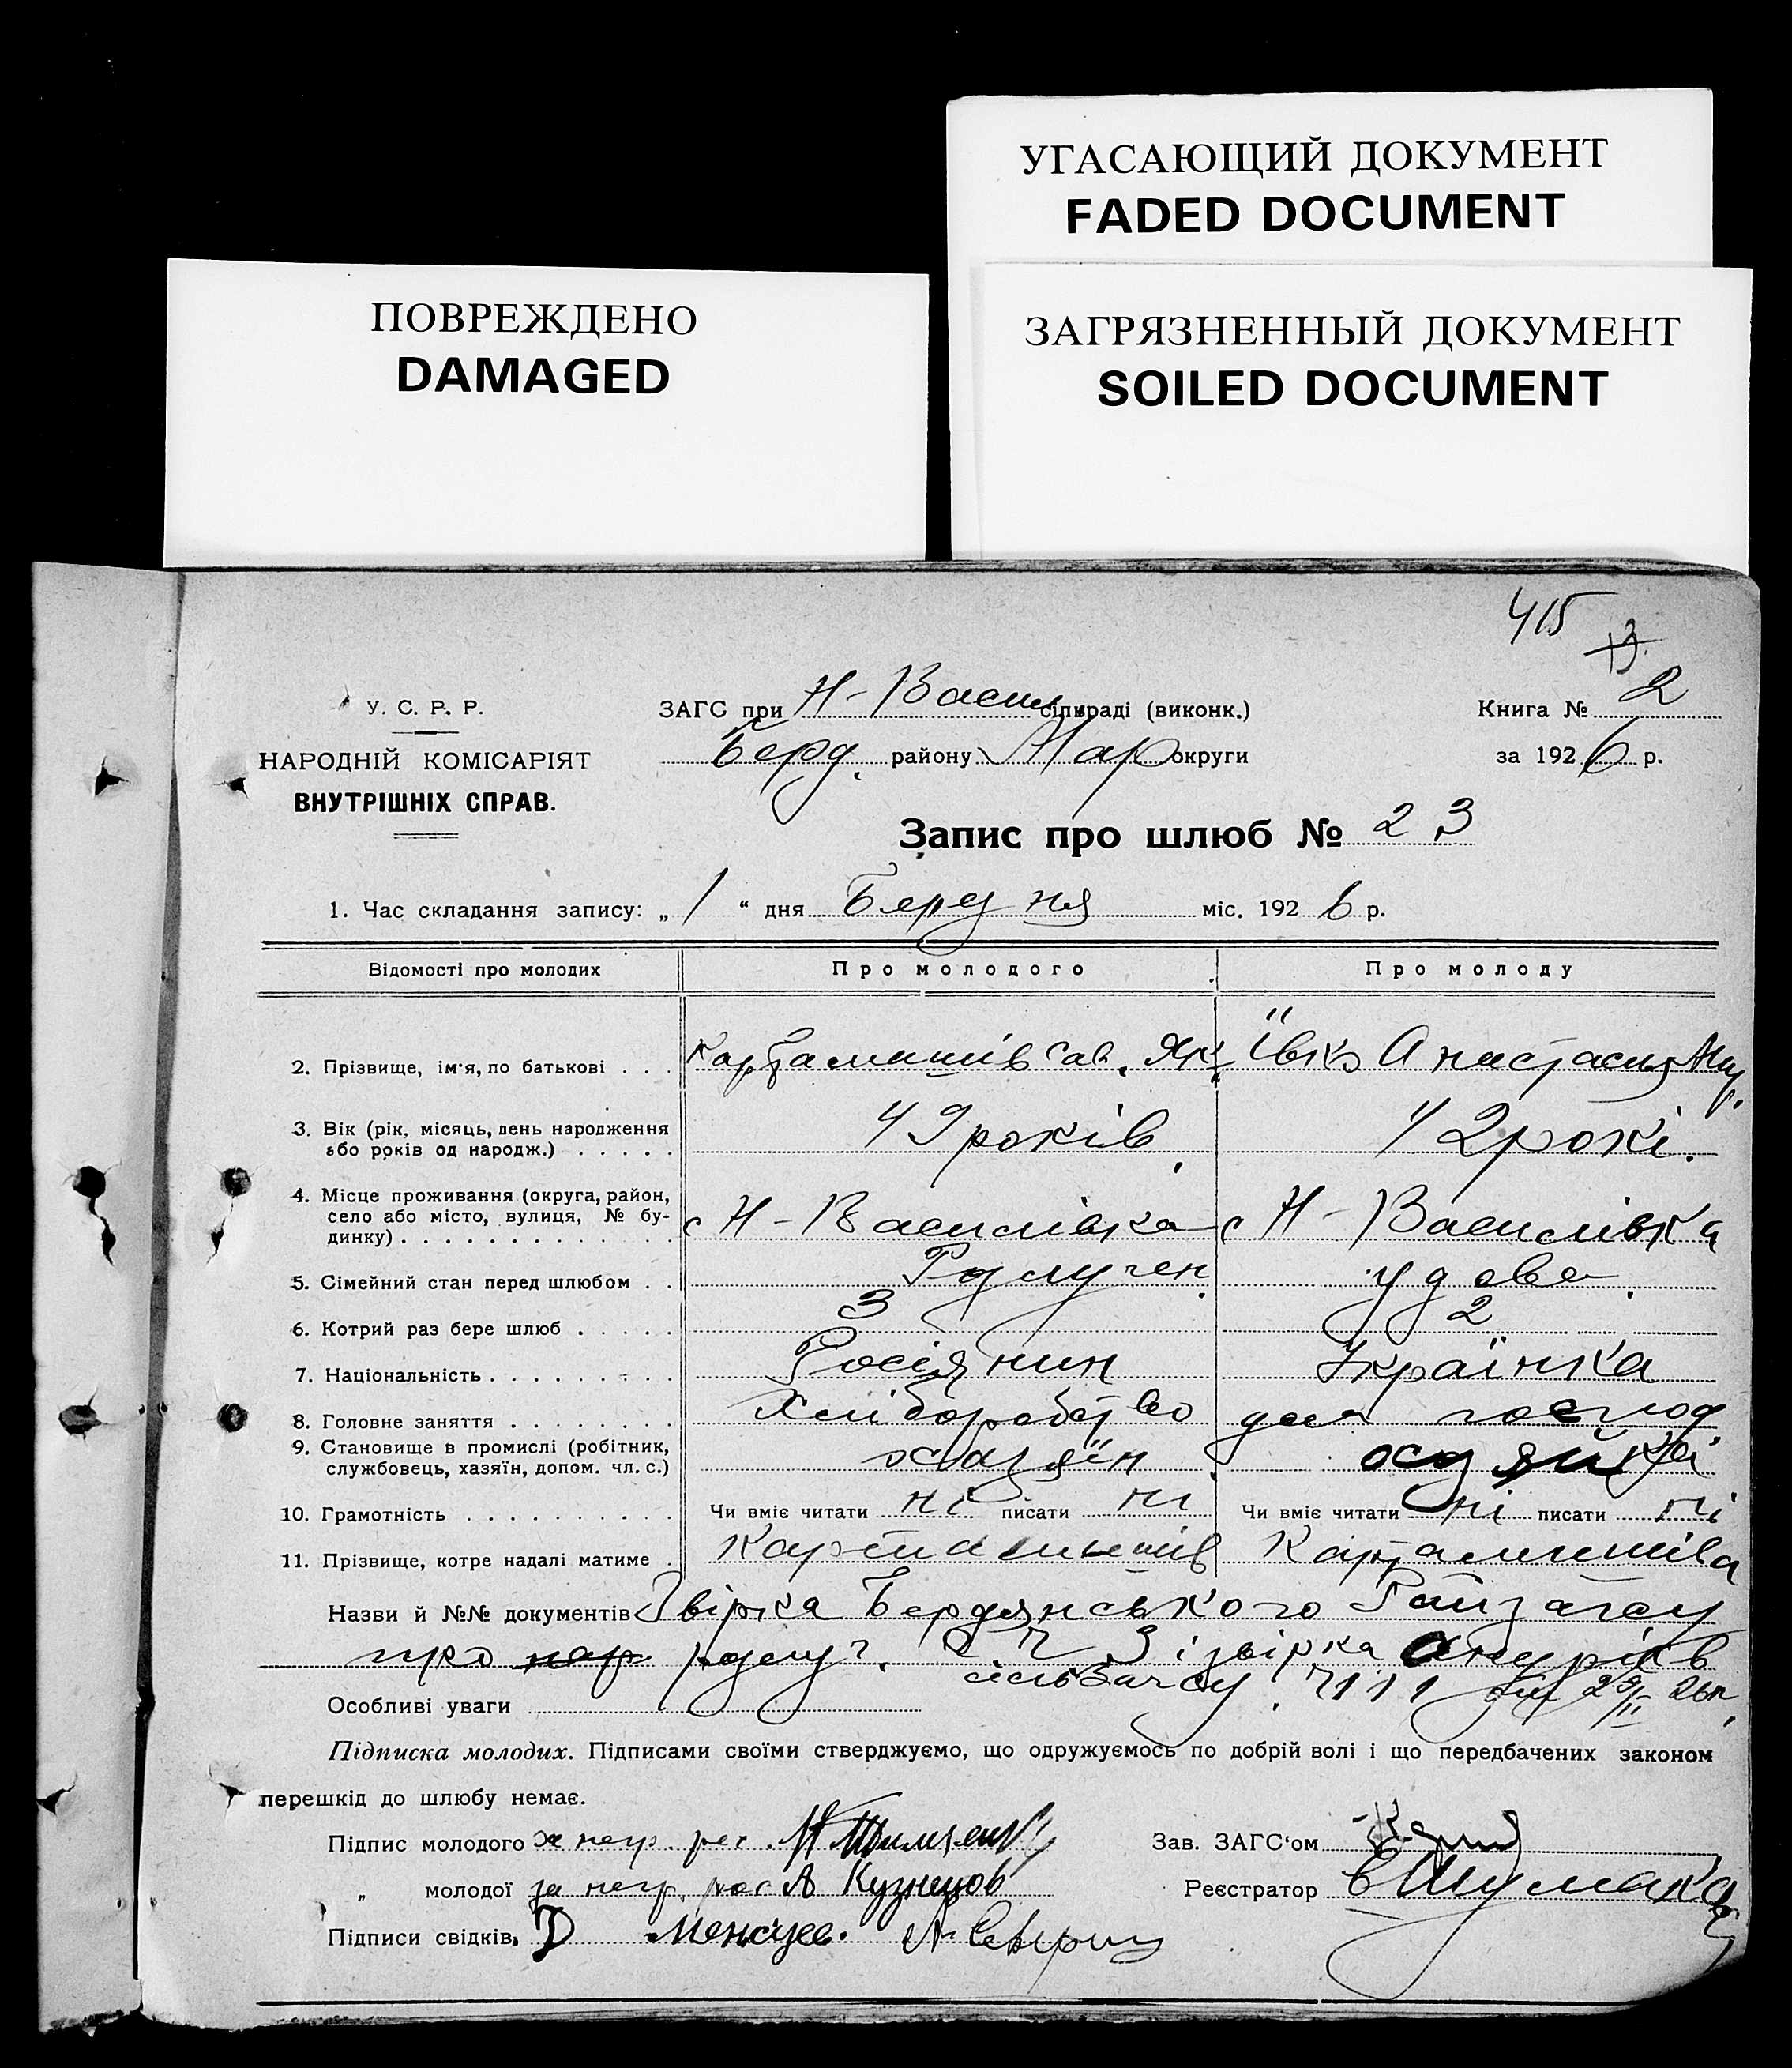 УГАСАЮЩИЙ ДОКУМЕНТ
FADED DOCUMENT
ПОВРЕЖДЕНО
DAMAGED
ЗАГРЯЗНЕННЫЙ ДОКУМЕНТ
SOILED DOCUMENT
415
13
У. С. Р. Р.
НАРОДНІЙ КОМІСАРІЯТ
ВНУТРІШНІХ СПРАВ.
ЗАГС при Н-Васил. сільраді (виконк.)
Берд. району Мар округи
Книга № 2
за 1926 р.
Запис про шлюб № 23
1. Час складання запису: „ 1 “ дня Березня міс. 1926 р.
Відомості про молодих Про молодого Про молоду
2. Прізвище, ім'я, по батькові . . . Картамишів Сав. Як. Ївко Анастасия
3. Вік (рік, місяць, день народження або років од народж.) . . . . . 49 років. 42 рокі.
4. Місце проживання (округа, район, село або місто, вулиця, № будинку) . . . с Н-Василівка с Н-Василівка
5. Сімейний стан перед шлюбом . . Розлучен. удова.
6. Котрий раз бере шлюб . . . . . 3 2
7. Національність . . . . . . . . . Росіянин Українка
8. Головне заняття . . . . . . . . Хліборобство дом господ.
9. Становище в промислі (робітник, службовець, хазяїн, допом. чл. с.) хазяїн
10. Грамотність . . . . . . . . . . Чи вміє читати ні писати ні Чи вміє читати ні писати ні
11. Прізвище, котре надалі матиме . Картамишів Картамишіва
Назви й №№ документів Звірка Бердянського Райзагсу
про розлуч. Ч 3 і звірка
сільзагсу Ч 111 29/II 26 р.
Особливі уваги
Підписка молодих. Підписами своїми стверджуємо, що одружуємось по добрій волі і що передбачених законом
перешкід до шлюбу немає.
Підпис молодого за негр. рос. Зав. ЗАГС'ом
„ молодої за негр. рос А Кузнецов Реєстратор Е Шумака
Підписи свідків. Д